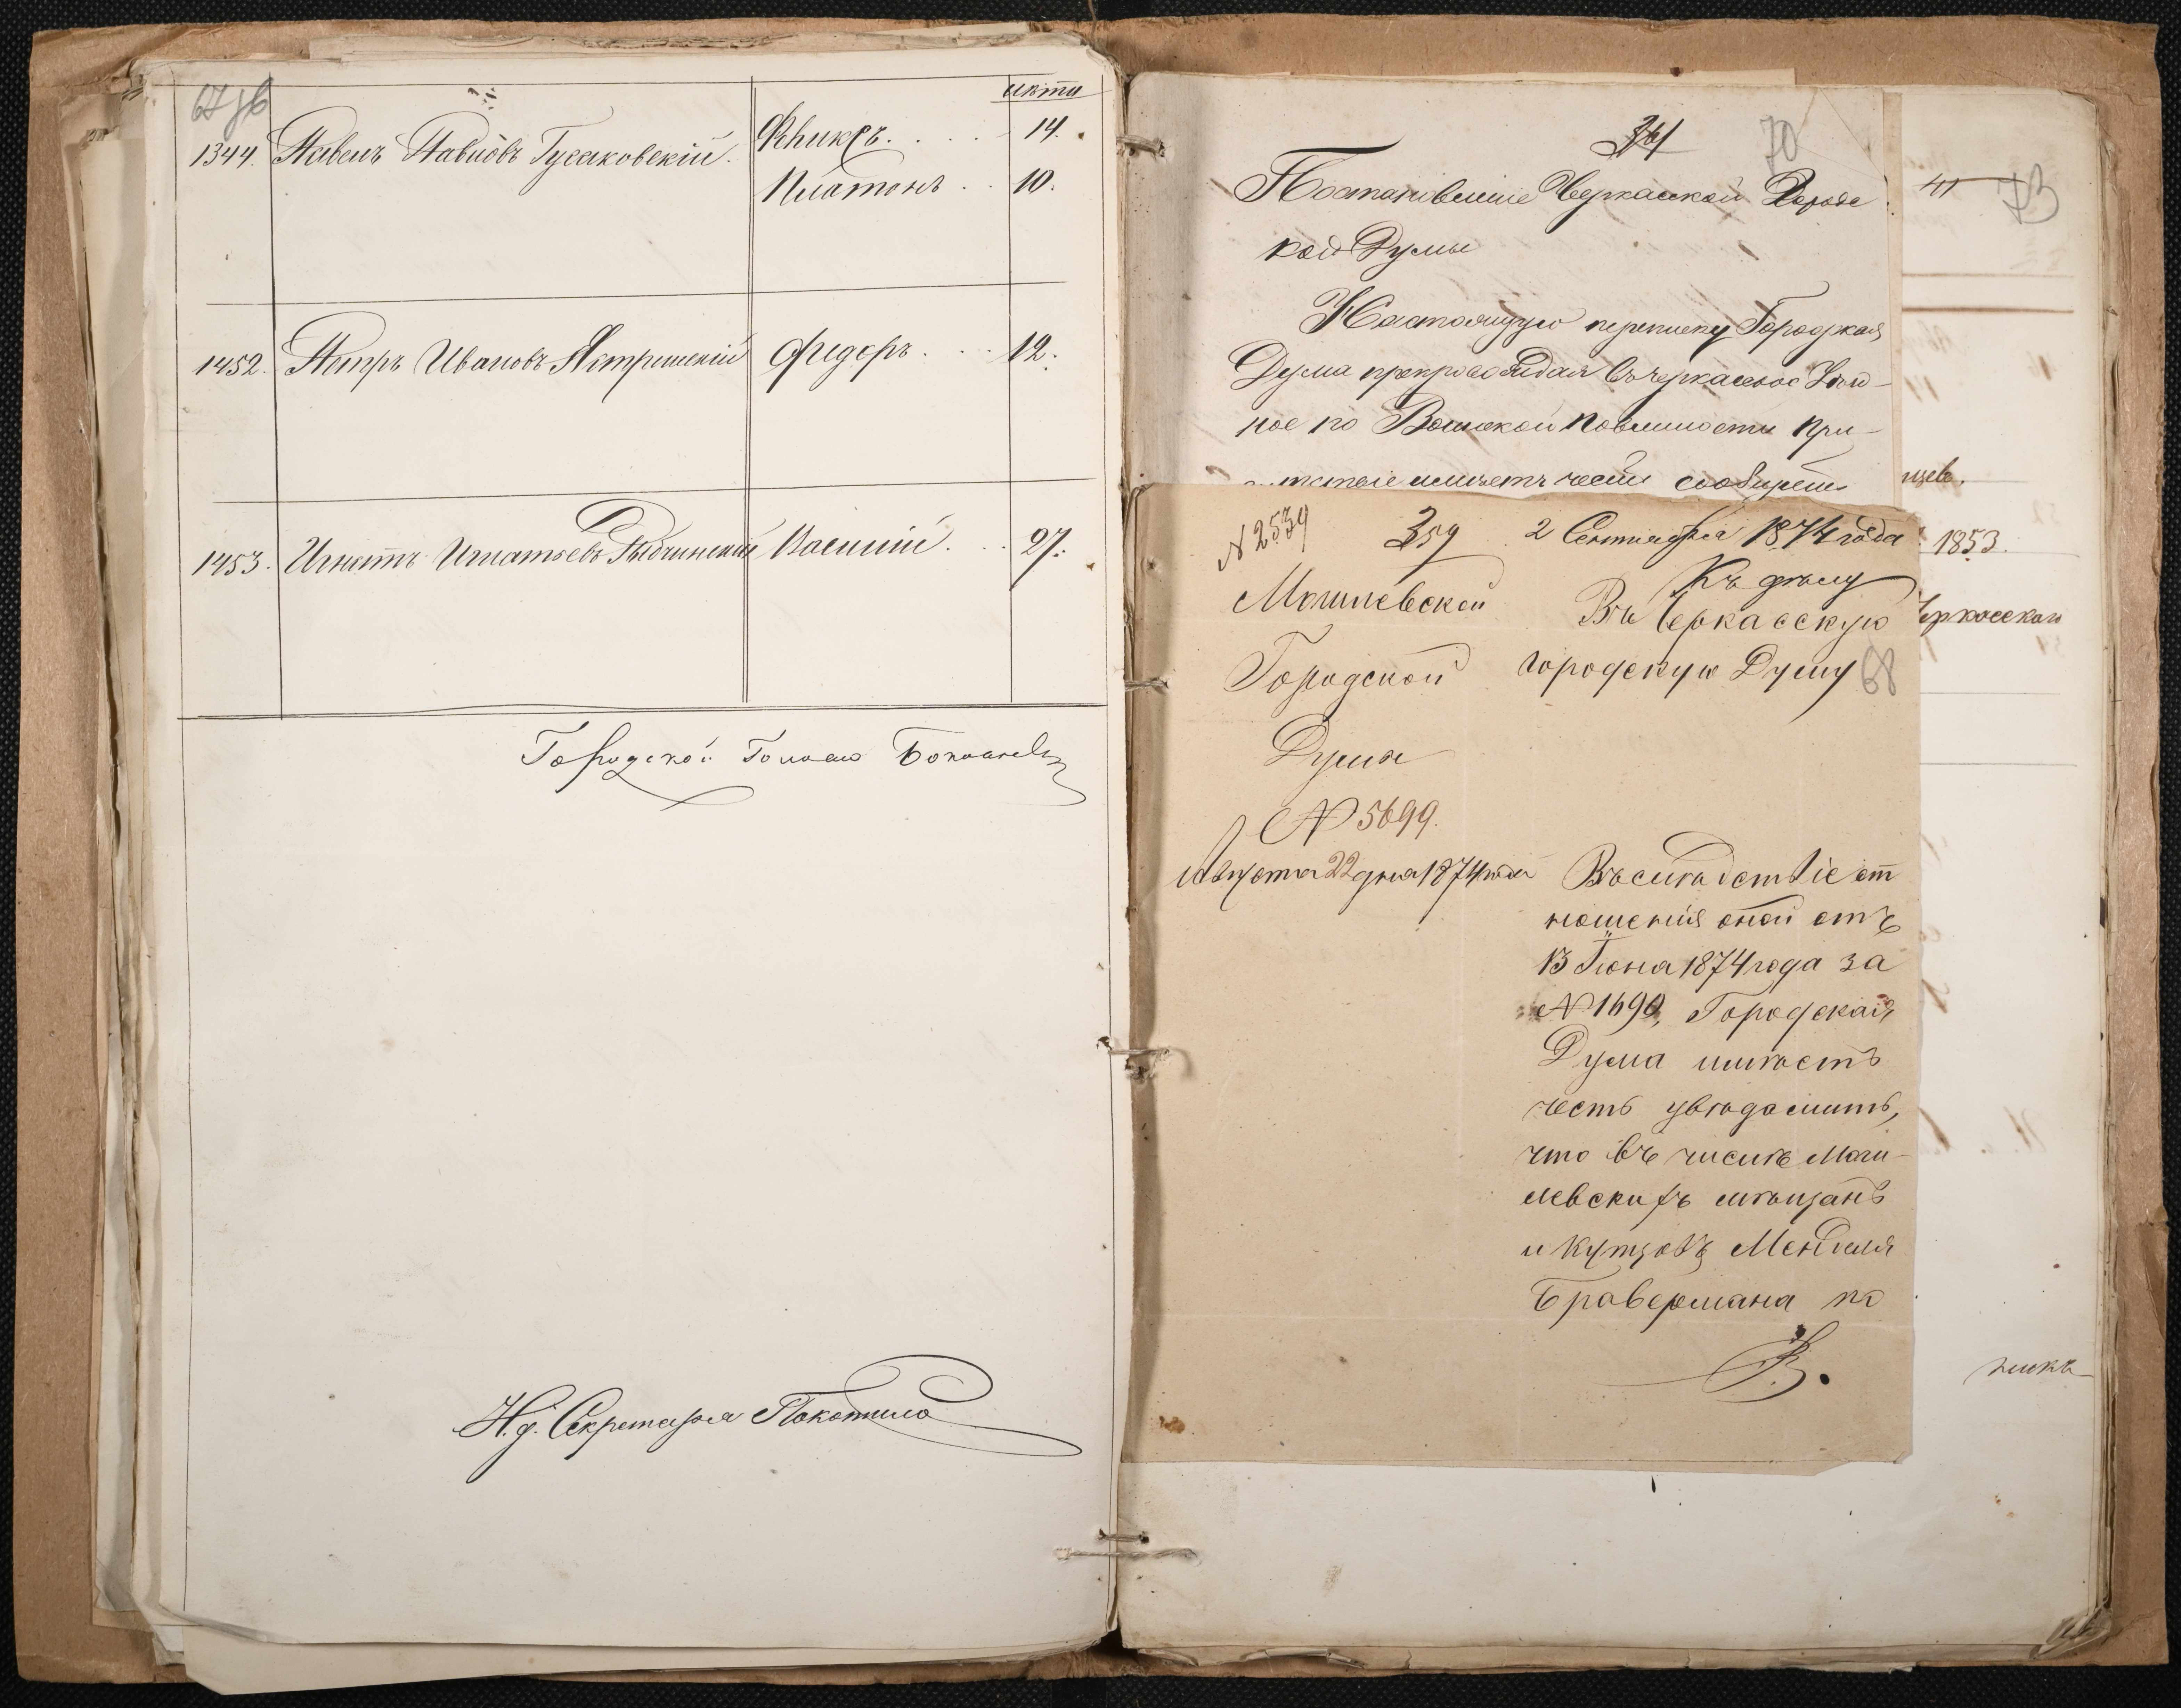 67 об
лѣта
1344. Павелъ Павловъ Гусаковскій. Фѣликсъ . . . . 14.
Платонъ . . 10.
1452. Петръ Ивановъ Ястремскій Федоръ . . . 12.
1453. Игнатъ Игнатьевъ Рыбчинскій Василій . . . 27.
Городской Голова
И. д. Секретаря Покотило
70
Постановленіе Черкаской Городс
кой Думы
Настоящую переписку Городская
Дума препровождая въ Черкаское Уѣзд-
ное по Воинской повинности При-
имѣетъ честь сообщить
73
41
щев.
1853.
Черкасскаго
N 2539
359
2 Сентября 1874 года
Къ дѣлу
Могилевской
Городской
Думы
N 5699.
Августа 22 дня 1874 года
Въ Черкасскую
городскую Думу
68
Въ слѣдствіе от
ношенія оной отъ
13 Іюня 1874 года за
N 1690, Городская
Дума имѣетъ
честь увѣдомить,
что въ числѣ Моги-
левскихъ мѣщанъ
и купцовъ Менделя
Бравермана по